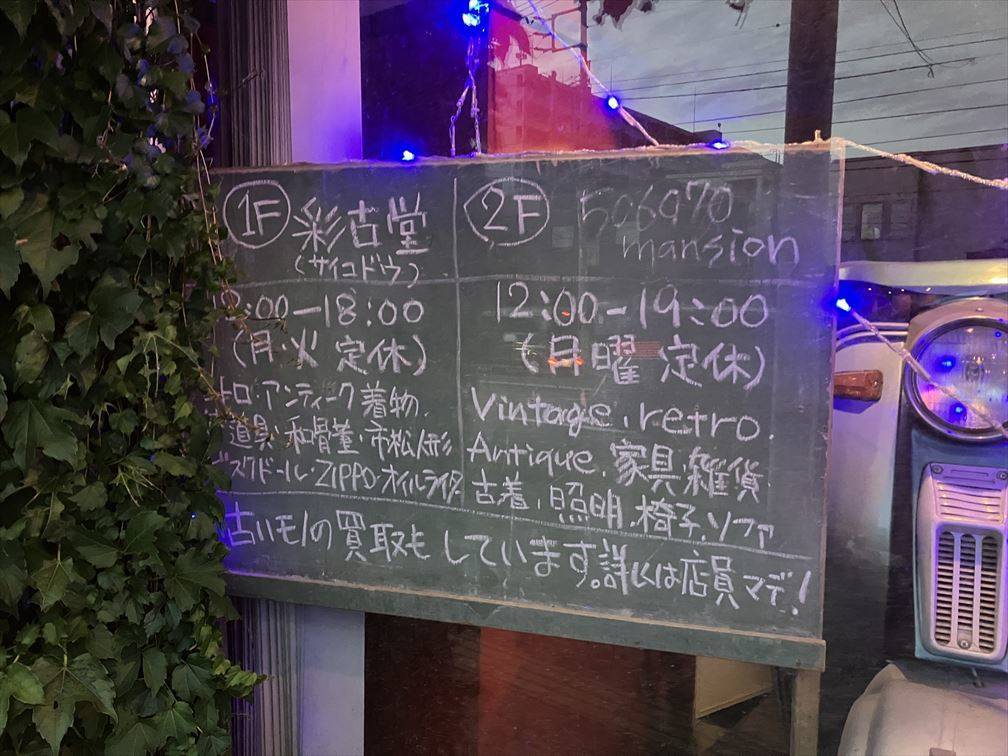 1F 彩古堂
(サイコドウ)
:00-18:00
(月・火 定休)
トロ・アンティーク着物.
道具・和骨董・市松人形
ビスクドール・ZIPPO・オイルライター
2F 506070
mansion
12:00-19:00
(月曜 定休)
Vintage.retro.
Antique.家具.雑貨
古着.照明.椅子.ソファ
古いモノの買取も しています。詳しくは店員マデ!